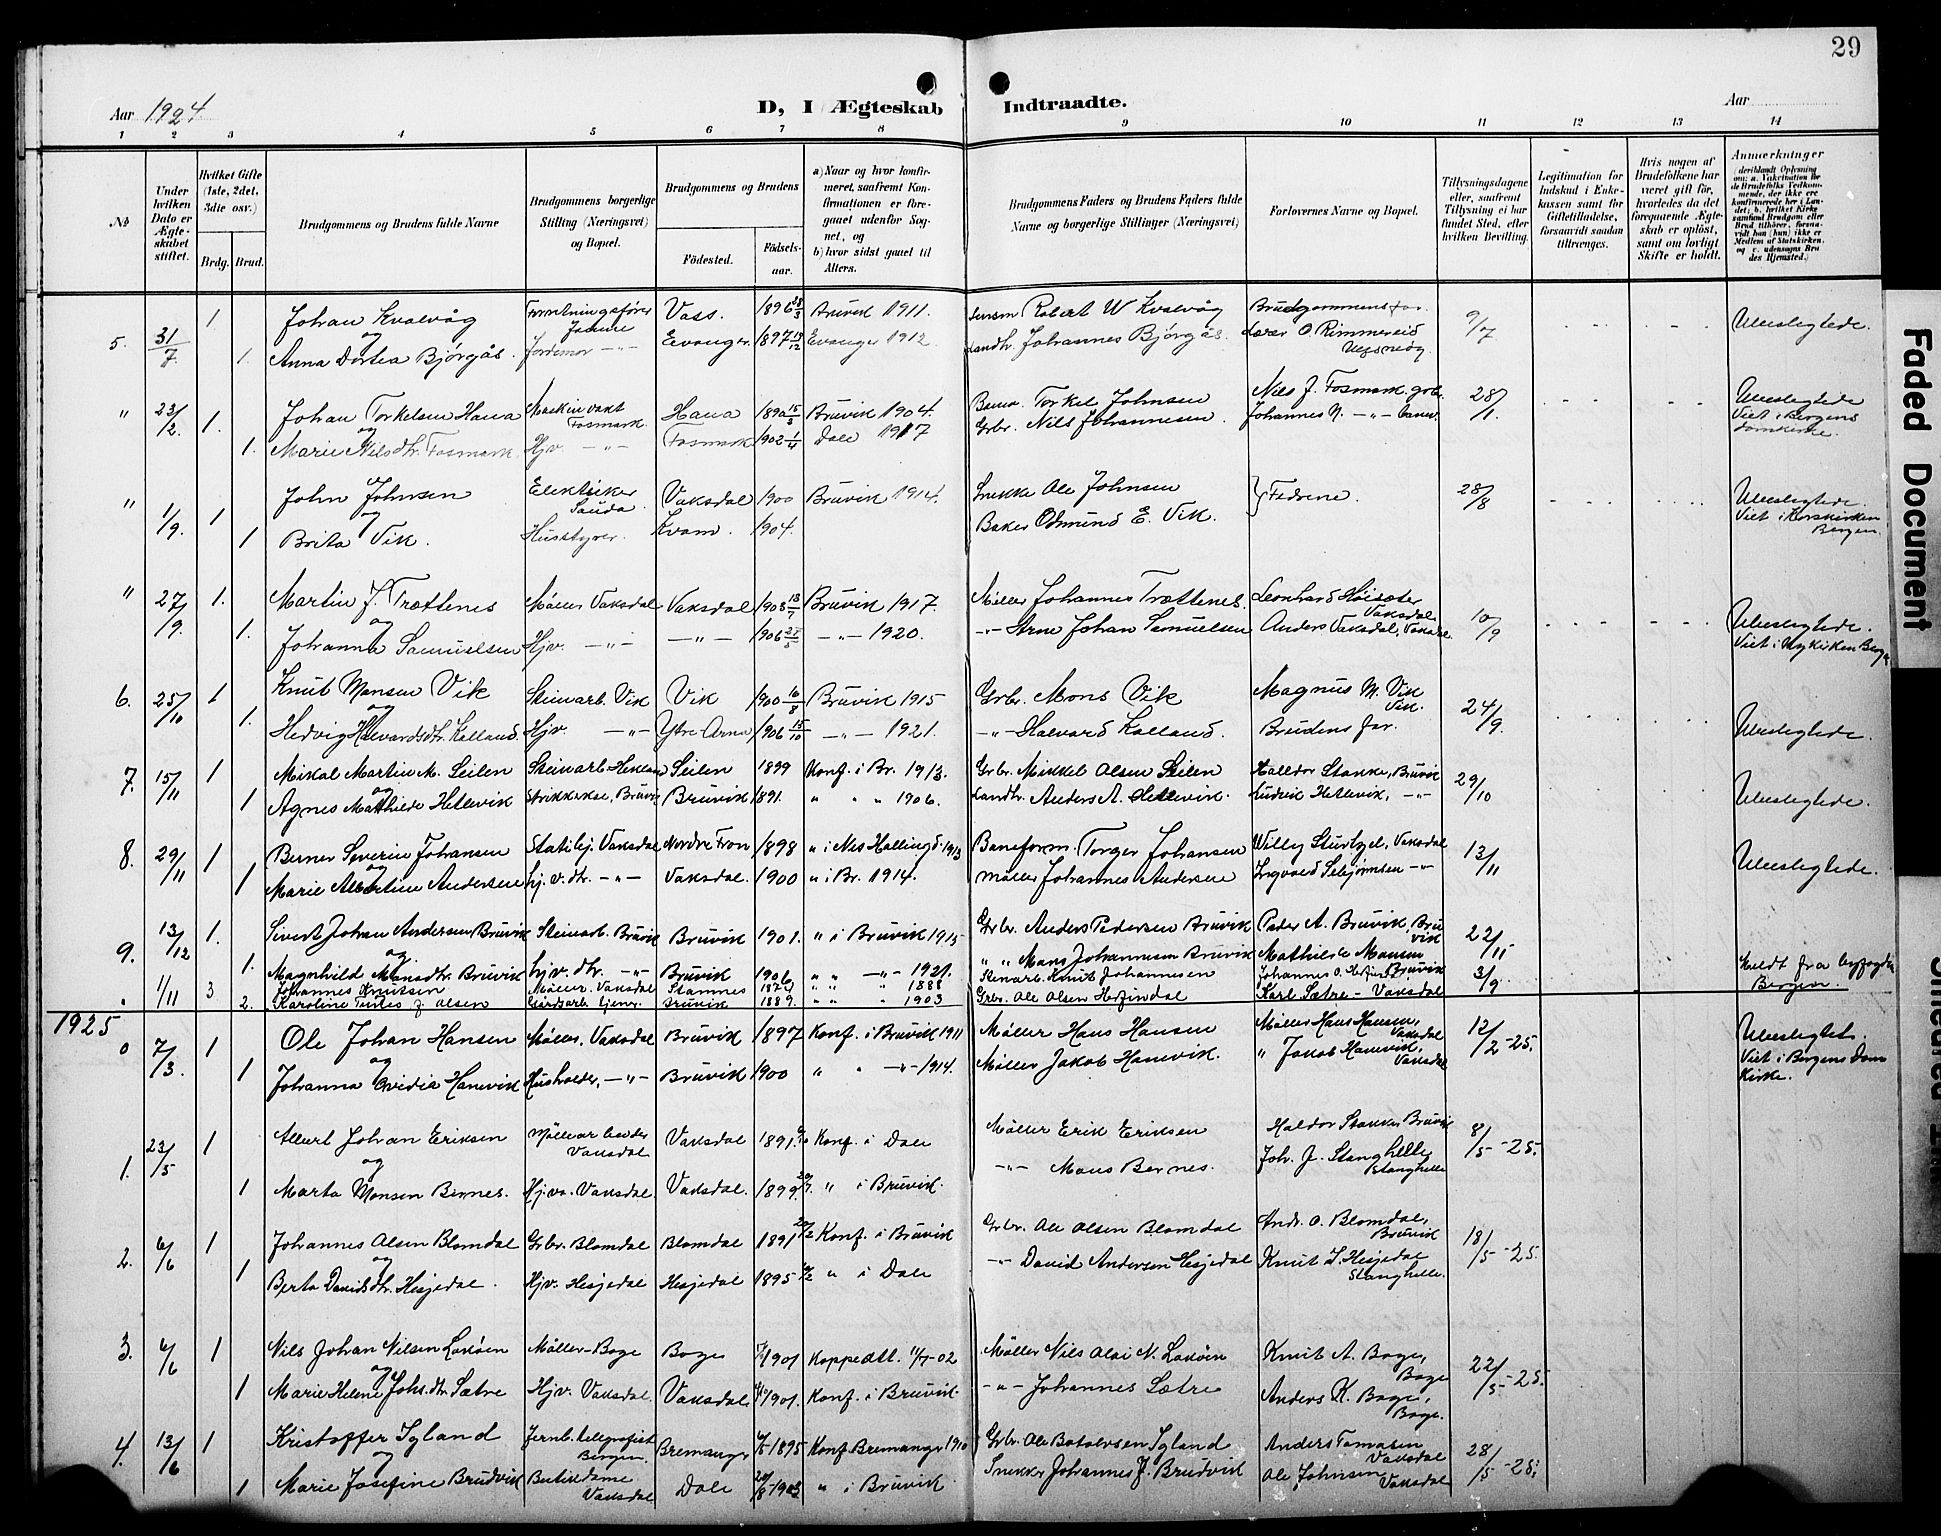 29
Aar 1924
D, I Ægteskab Indtraadte.
Aar
1 2 3 4 5 6 7 8 9 10 11 12 13 14
№
Under hvilken Dato er Ægteskabet stiftet.
Hvilket Gifte (1ste, 2det, 3die osv.)
Brdg. Brud.
Brudgommens og Brudens fulde Navne
Brudgommens borgerlige Stilling (Næringsvei) og Bopæl.
Brudgommens og Brudens
Fødested. Fødselsaar.
a) Naar og hvor konfirmeret, saafremt Konfirmationen er foregaaet udenfor Sognet, og
b) hvor sidst gaaet til Alters.
Brudgommens Faders og Brudens Faders fulde Navne og borgerlige Stillinger (Næringsvei)
Forlovernes Navne og Bopæl.
Tillysningsdagene eller, saafremt Tillysning ei har fundet Sted, efter hvilken Bevilling.
Legitimation for Indskud i Enkekassen samt for Giftetilladelse, forsaavidt saadan tiltrænges.
Hvis nogen af Brudefolkene har været gift før, hvorledes da det foregaaende Ægteskab er opløst, samt om lovligt Skifte er holdt.
Anmærkninger
5. 31/7 1 Johan Kvalvåg Voss. 1896 28/3 Bruvik 1911. Lensm Robert W Kvalvåg Brudgommens far 9/7 Ubeslegtede.
og
1. Anna Dortea Bjørgås. Jordmor -"- Evanger. 1897 19/12 Evanger 1912. Landh. Johannes Bjørgås. Lærer O. Rimmereid
" 23/2. 1. Johan Torkelsen Hana Maskinvakt Fosmark. Hana 1890 15/3 Bruvik 1904. Torkel Johnsen Nils J. Fosmark grbr. 28/1. Ubeslegtede
og Viet i Bergens domkirke.
1. Marie Nilsdtr. Fosmark. Hjv. -"- Fosmark 1902 1/4 Dale 1917 Grbr. Nils Johannesen. Johannes N. -"-
" 1/9. 1 John Johnsen Elektriker Sauda Vaksdal 1900 Bruvik 1914. Snekke Ole Johnsen } Fedrene. 28/8 Ubeslegtede.
og Viet i Korskirken Bergen.
1 Brita Vik. Husstyrer. Kvam. 1904. Baker Odmund E. Vik.
" 27/9. 1. Martin J. Trættenes Møller Vaksdal Vaksdal 1903 13/7 Bruvik 1917. Møller Johannes Trættenes. Leonhard Høisæter Vaksdal 10/9 Ubeslegtede.
og Viet i Nykirken Berg.
1. Johanna Samuelsen Hjv. -"- -"- 1906 25/5 -"- 1920. -"- Arne Johan Samuelsen Anders Vaksdal, Vaksdal
6. 25/10 1 Knut Monsen Vik Steinarb. Vik Vik 1900 16/8 Bruvik 1915 Grbr. Mons Vik Magnus M. Vik Vik. 24/9. Ubeslegtede.
og
1. Hedvig Halvardsdtr. Kalland. Hjv. -"- Ytre Arna 1906 15/10 -"- 1921. -"- Halvard Kalland. Brudens far.
7. 15/11 1 Mikal Martin M. Seilen Steinarb. Seilen 1899 Konf. i Br. 1913. Grbr. Mikkel Olsen Seilen Halldor Stanke, Bruvik 29/10 Ubeslegtede.
og
1 Agnes Mathilde Hetlevik Bruvik 1891. " " " 1906. Landh. Anders A. Hetlevik. Ludvik Hetlevik, -"-
8. 29/11 1 Berner Severin Johansen Vaksdal Nordre Fron 1898 " i Nes Hallingd. 1913 Baneform. Torger Johansen Willy Sturtzel, Vaksdal 13/11 Ubeslegtede.
og
1 Marie Albertine Andersen hj. v. dtr. -"- Vaksdal. 1900 " i Br. 1914. Møller Johannes Andersen Ingvald Sebjørnsen -"-
9. 13/12 1. Sivert Johan Andersen Bruvik Steinarb. Bruvik Bruvik 1901. " i Bruvik 1915 Grbr. Anders Pedersen Bruvik Peder A. Bruvik, Bruvik 22/11
og
1. Magnhild Monsdtr. Bruvik hj. v. dtr. -"- Bruvik 1906 " " -"- 1921. " " Mons Johannesen Bruvik Mathilde Monsen Bruvik
" 1/11 3 Johannes Knutsen Møller. Vaksdal Stamnes 1874 " " " 1888 Stenarb. Knut Johannesen 3/9. Meldt fra byfogden Bergen.
2. Karoline f. Olsen Bruvik 1889. " " " 1903 Grbr. Ole Olsen Herfindal Karl Sætre - Vaksdal
1925
0 7/3. 1 Ole Johan Hansen Møller. Vaksdal Bruvik 1897 Konf. i Bruvik 1911 Møller Hans Hansen Møller Hans Hansen, Vaksdal 12/2-25. Ubeslegtet.
og Viet i Bergens Dom Kirke.
1 Johanna Ovidia Hanevik Husholder, -"- Bruvik 1900 " " -"- 1914. Møller Jakob Hanevik. " Jakob Hanevik, Vaksdal
1. 23/5 1 Albert Johan Eriksen Møllearbeider Vaksdal Vaksdal 1891. Konf. i Dale Møller Erik Eriksen Haldor Stanke, Bruvik 8/5-25.
og
1 Marta Monsen Bernes. Hjv. Vaksdal. Vaksdal. 1899. " i Bruvik. -"- Mons Bernes. Joh. J. Stanghelle Stanghelle
2. 6/6 1 Johannes Olsen Blomdal Grbr. Blomdal Blomdal 1891 Konf. i Bruvik Grbr. Ole Olsen Blomdal Andr. O. Blomdal, Bruvik 18/5-25.
og
1 Berta Davidsdtr. Hesjedal. Hjv. Hesjedal Hesjedal 1895 " i Dale -"- David Andersen Hesjedal Knut Hesjedal Stanghelle.
3. 6/6 1 Nils Johan Nilsen Laxøen Møller - Boge Boge 1901 Koppeatt. 11/7-02 Møller Nils Olai N. Laxøen Knut A. Boge, Boge 22/5-25.
og
1 Marie Helene Johs.dtr. Sætre Hjv. Vaksdal. Vaksdal 1901. Konf. i Bruvik. -"- Johannes Sætre Anders K. Boge, Boge.
4. 13/6 1 Kristoffer Igland Jernb. telegrafist Bergen. Bremanger 1895 Konf. Bremanger 1910 Grbr. Ole Botolvsen Igland Anders Tomasen Vaksdal 28/5-25.
og
1 Marie Josefine Brudvik Butikdame Vaksdal Dale 20/8-1903 " i Bruvik. Snekker Johannes J. Brudvik Ole Johnsen Vaksdal
Faded Document